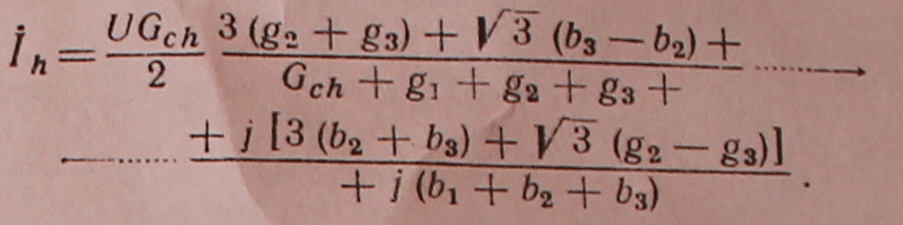 İ_h = UG_ch/2 · 3 (g₂ + g₃) + √3 (b₃ − b₂) + / G_ch + g₁ + g₂ + g₃ + ........→
........ + j [3 (b₂ + b₃) + √3 (g₂ − g₃)] / + j (b₁ + b₂ + b₃) .